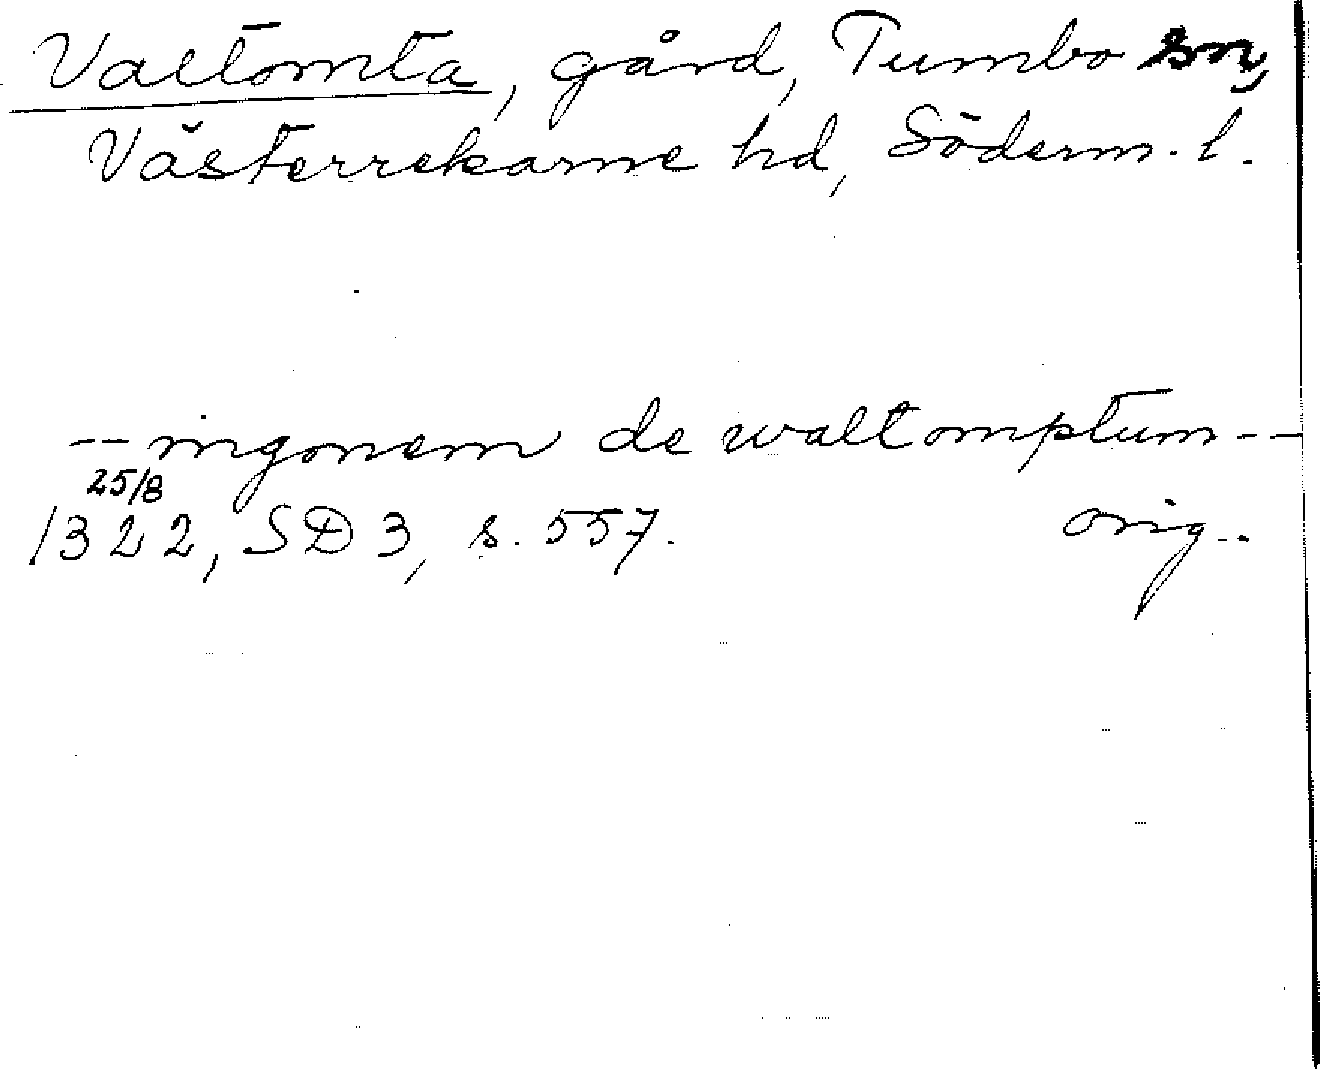 Valtomta, gård, Tumbo sn,
Västerrekarne hd, Söderm. l.
-- ingonem de waltomptum --
25/8
1322, SD 3, s. 557. orig..